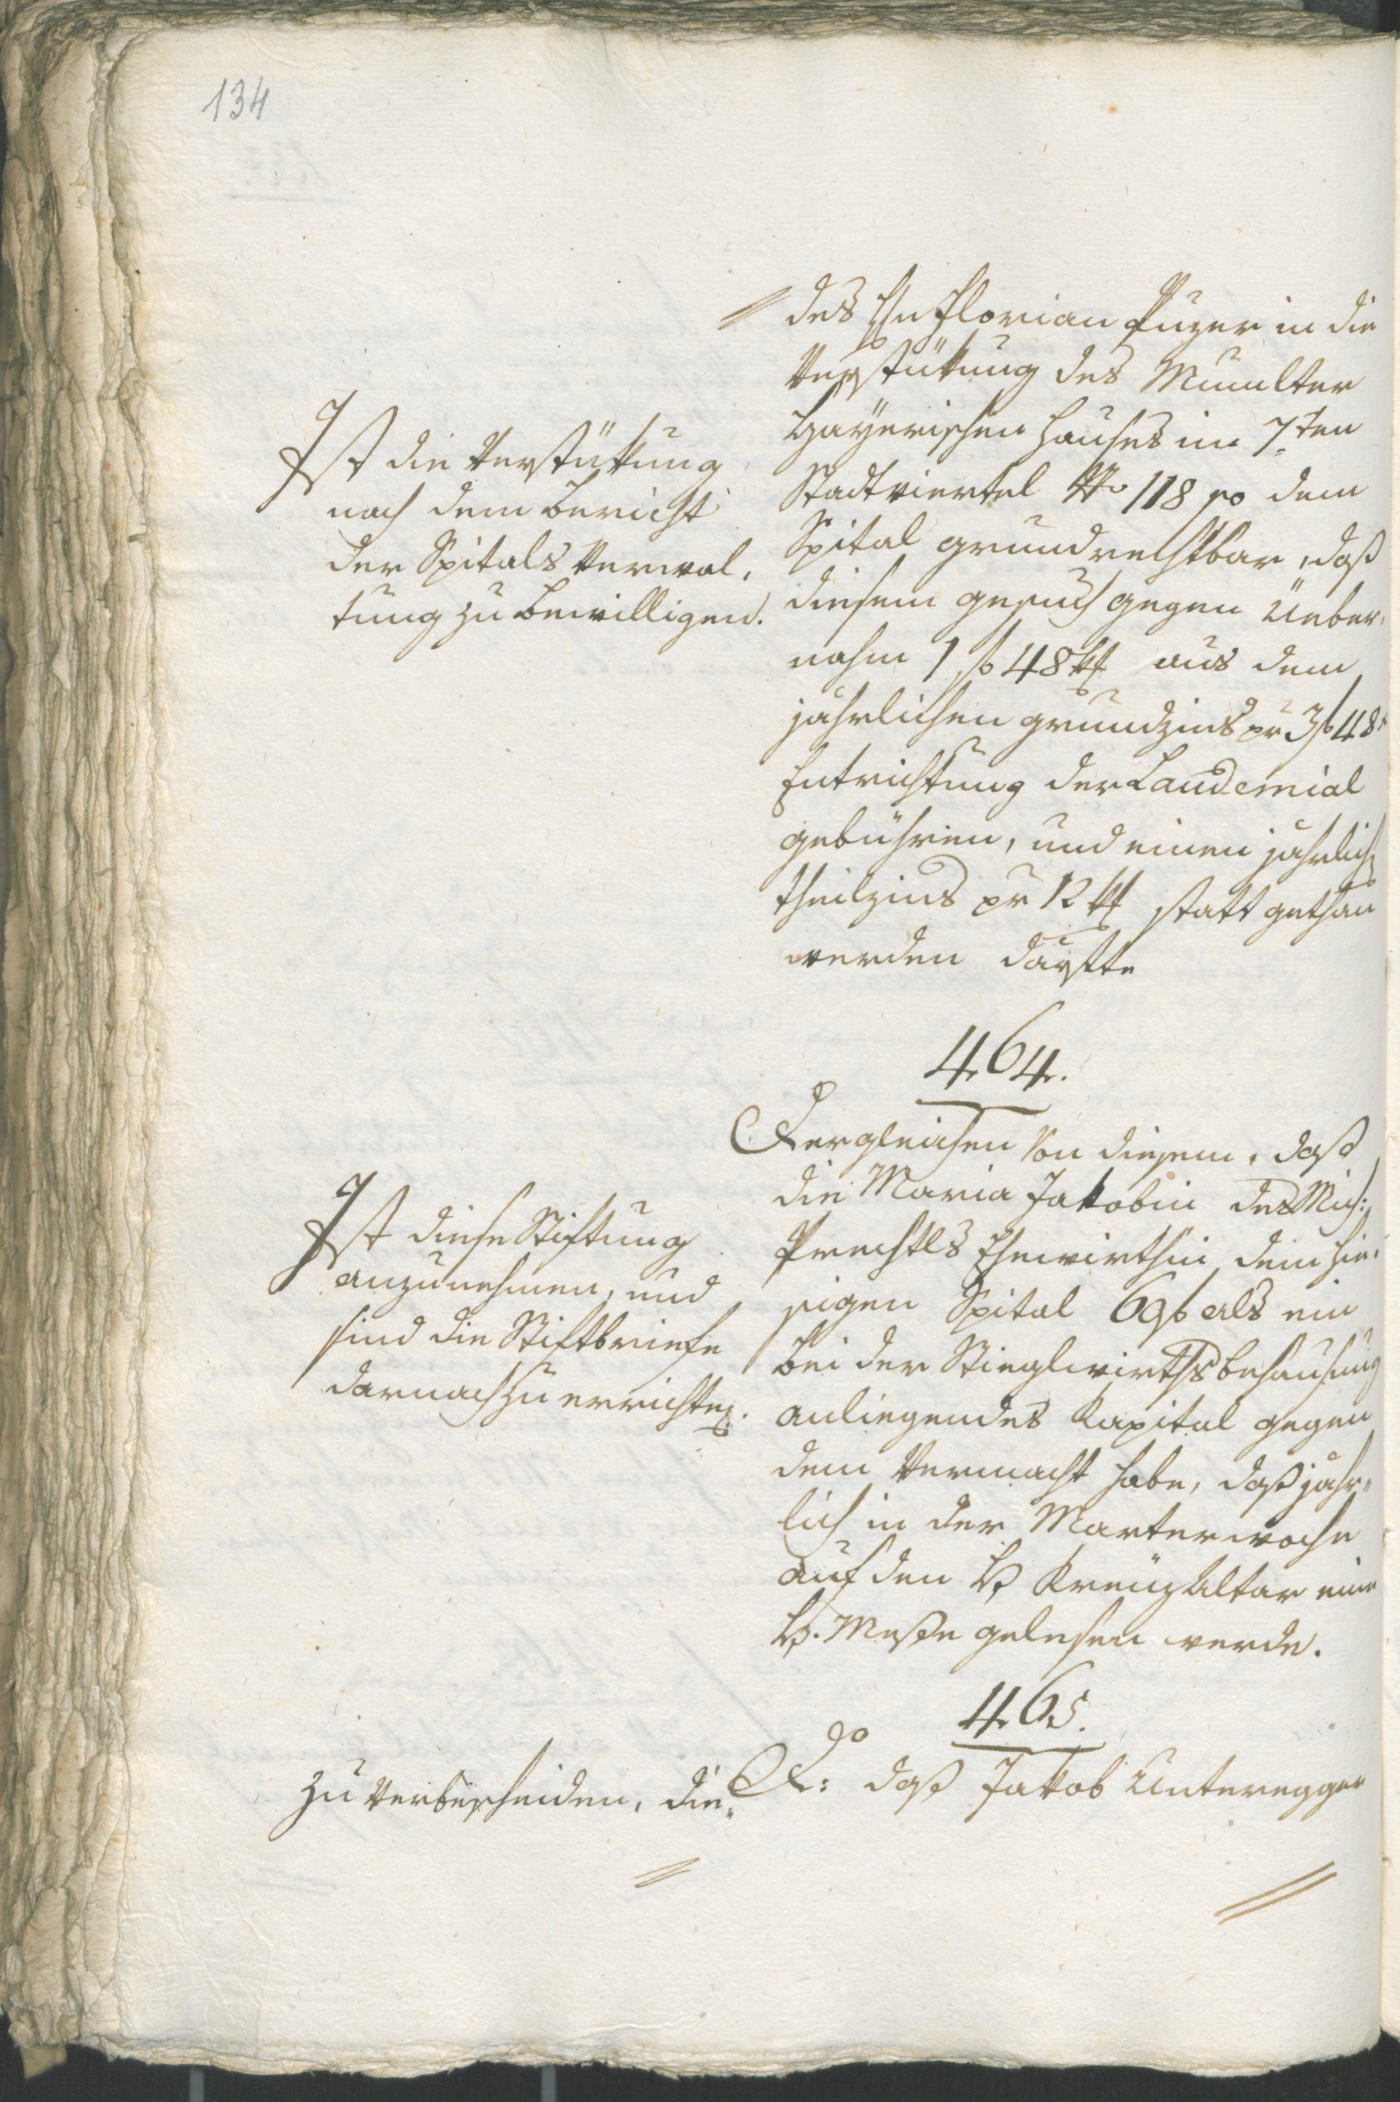 134
des Hn Florian Puzer in die
Verstükung des Mumlter
Bayerischen Hauses im 7ten
Stadtviertel No 118 so dem
Spital grundrechtbar, daß
diesem gesuch gegen Ueber,
nahm 1 f 48 kr aus dem
jährlichen grundzins pr 3 f 48
Entrichtung der Laudemial
gebühren, und einen jährlich
theilzins pr 12 kr statt gethan
werden dürfte
Ist die Verstükung
nach dem Bericht
der Spitals Verwal,
tung zu bewilligen.
464.
Dergleichen von diesem, daß
die Maria Jakobin des Mich:
Prechtls Ehewirthin dem hie,
sigen Spital 60 f als ein
bei der Stieglwirthsbehausung
anliegendes Kapital gegen
dem Vermacht habe, daß jähr„
lich in der Marterwoche
auf den H. Kreuzaltar eine
H. Messe gelesen werde.
Ist diese Stiftung
anzunehmen, und
sind die Stiftbriefe
darnach zu errichten.
465.
do: daß Jakob Unteregger
Zu verbescheiden, die„